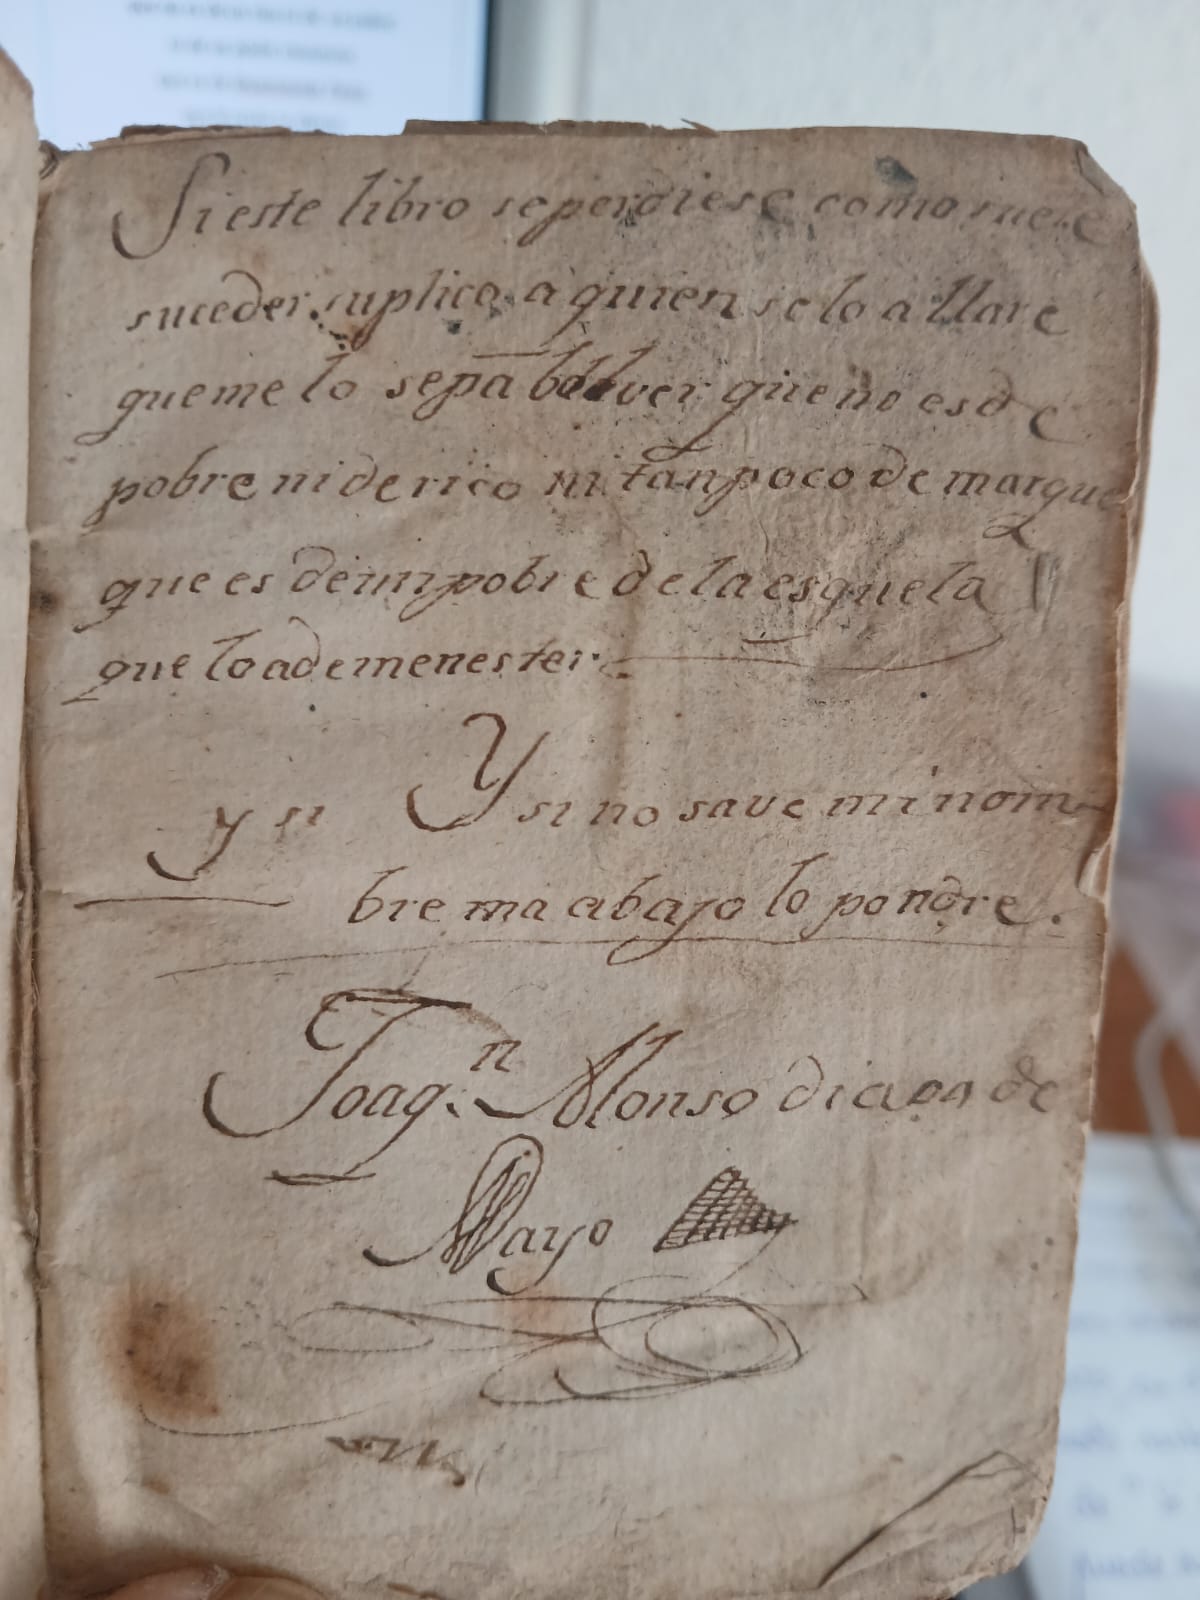 Si este libro se perdiese como suele
suceder suplico a quien se lo allare
que me lo sepa bolver que no es de
pobre ni de rico ni tanpoco de marque
que es de un pobre de la esquela
que lo ade menester.
y si Y si no save mi nom-
bre ma abajo lo pondre.
Joaq.n Alonso de
Mayo